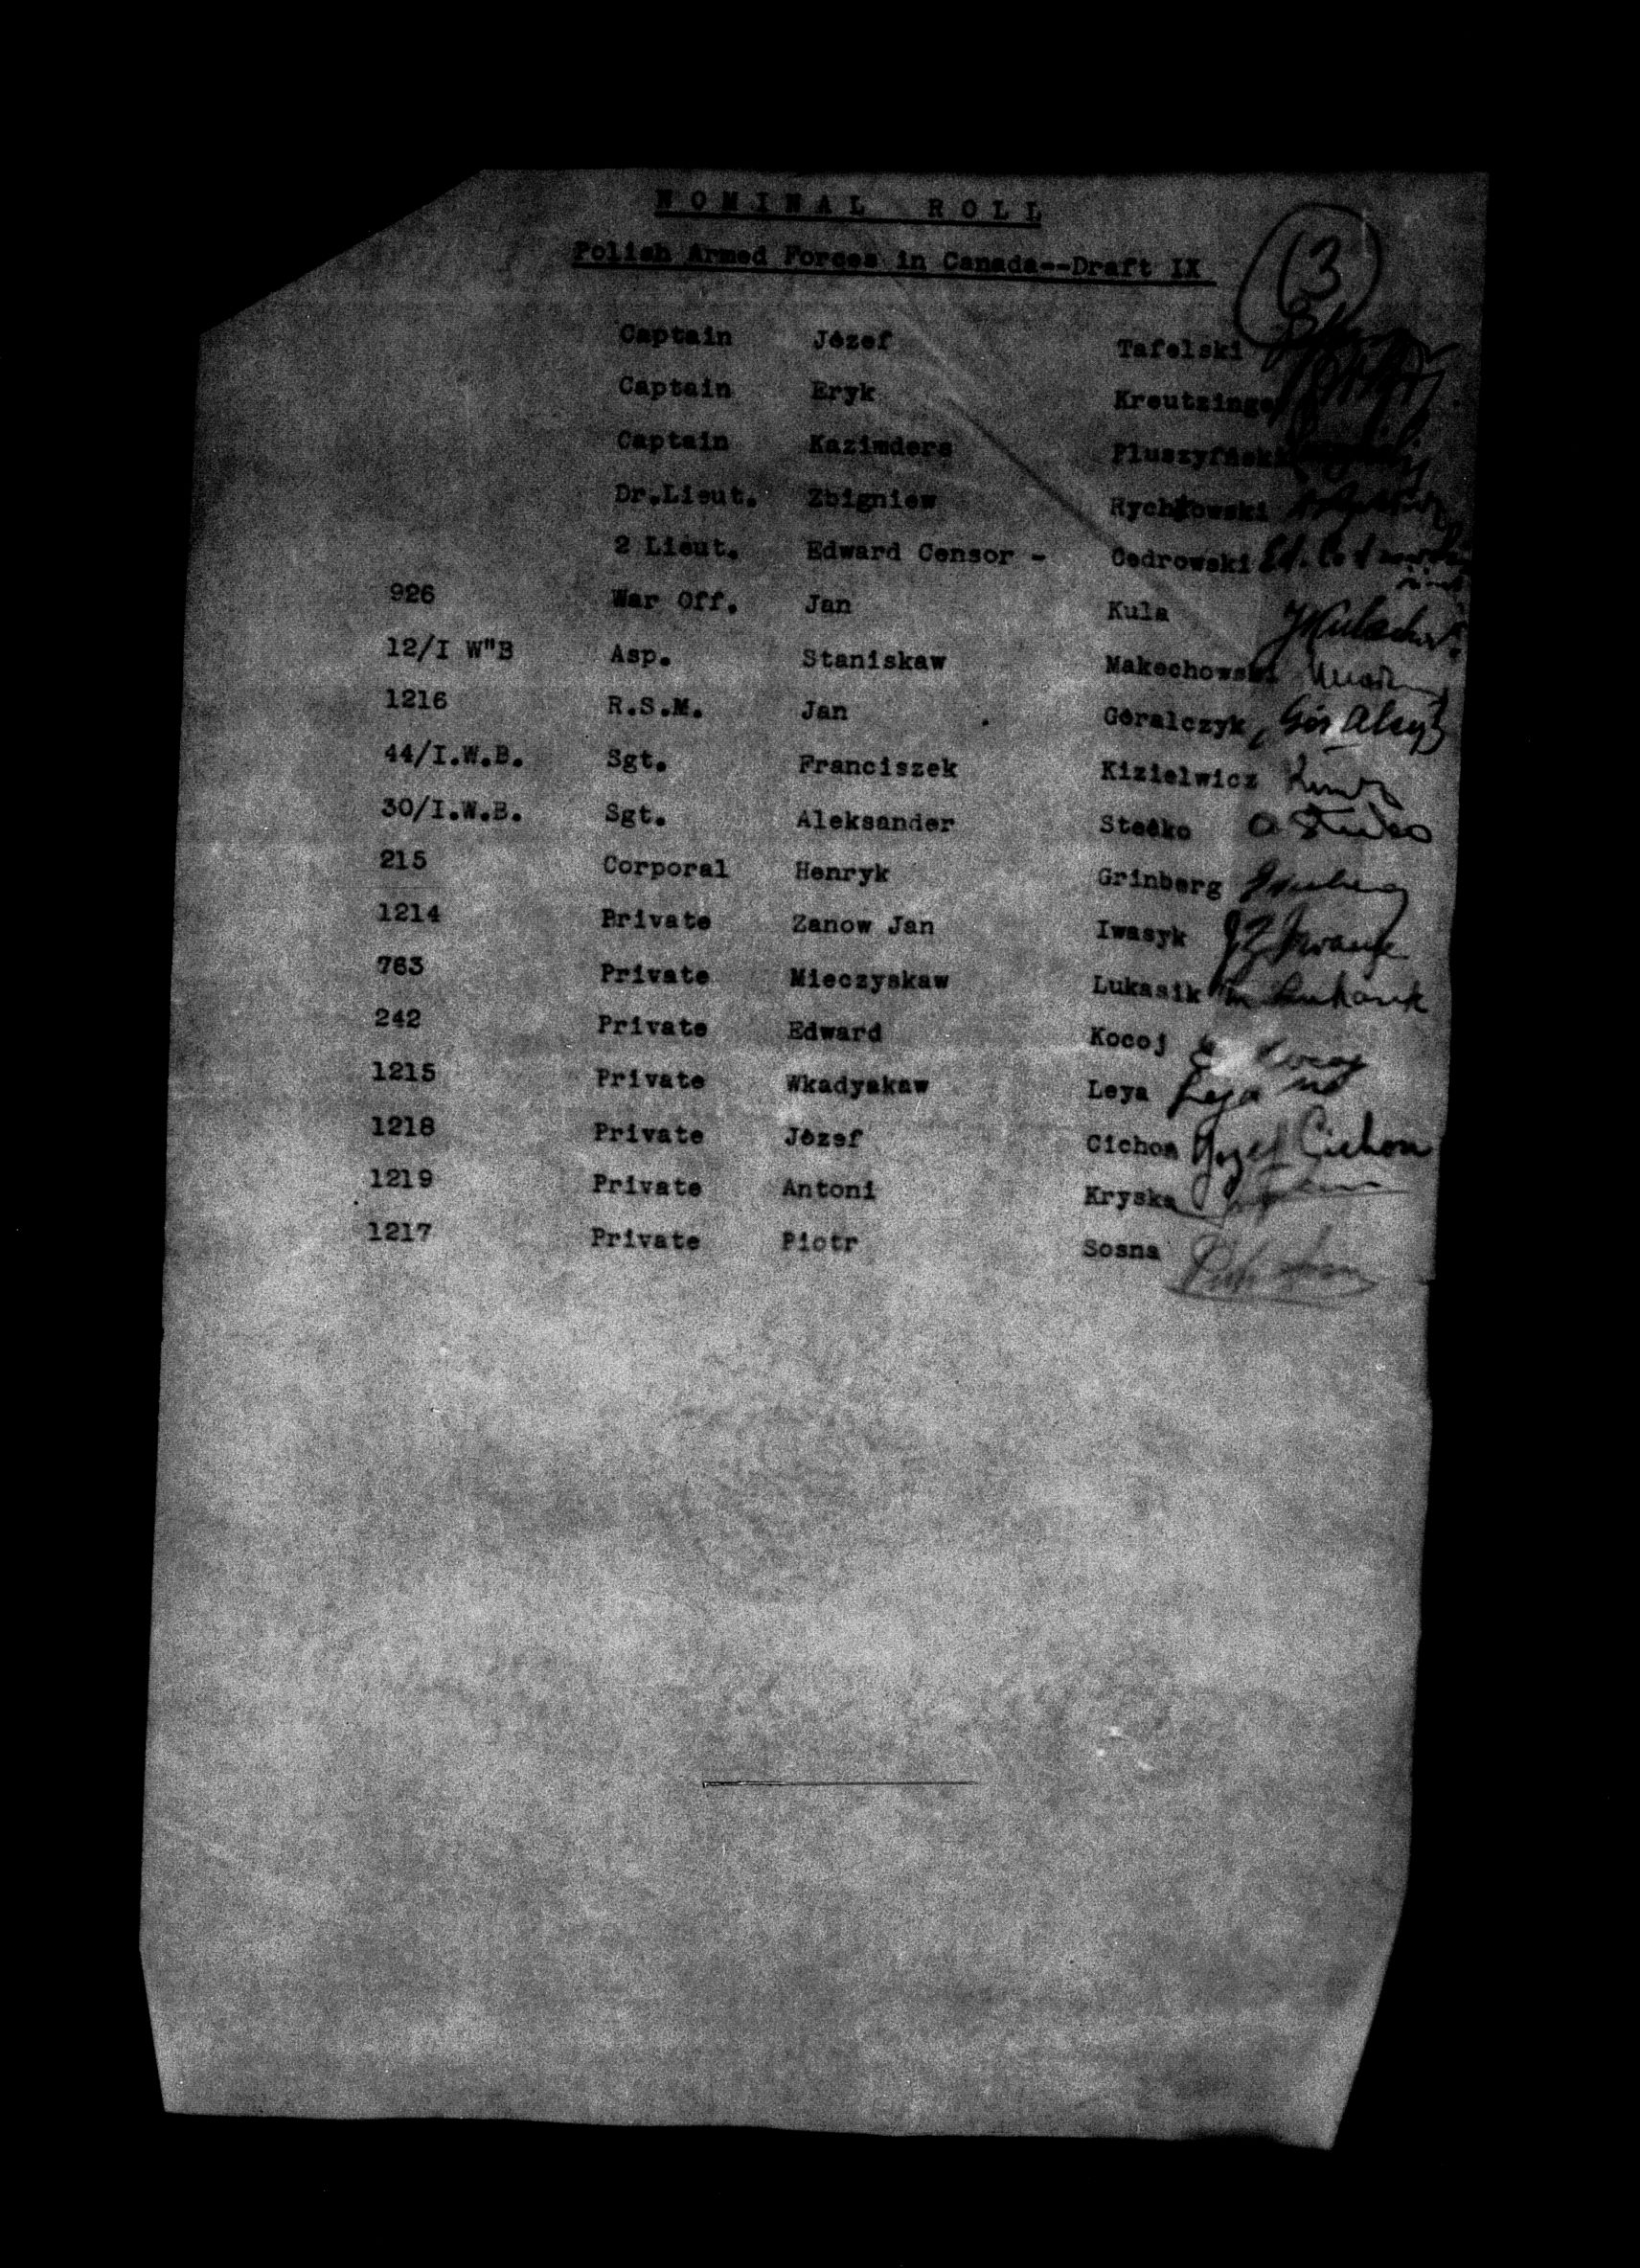 NOMINAL ROLL
Polish Armed Forces in Canada--Draft IX
(3
Captain Józef Tafelski
Captain Eryk Kreutzinger
Captain Kazimders
Dr.Lieut. Zbigniew Rychłowski
2 Lieut. Edward Censor - Cedrowski Ed. Cedrowski
926 War Off. Jan Kula JKula
12/I W"B Asp. Staniskaw Makechowski
1216 R.S.M. Jan Góralczyk, Góralczyk
44/I.W.B. Sgt. Franciszek Kizielwicz
30/I.W.B. Sgt. Aleksander Stećko
215 Corporal Henryk Grinberg Grinberg
1214 Private Zanow Jan Iwasyk JZ Iwasyk
763 Private Mieczyskaw Lukasik M Lukasik
242 Private Edward Kocoj E Kocoj
1215 Private Wkadyskaw Leya Leja
1218 Private Józef Cichon Jozef Cichon
1219 Private Antoni Kryska
1217 Private Piotr Sosna